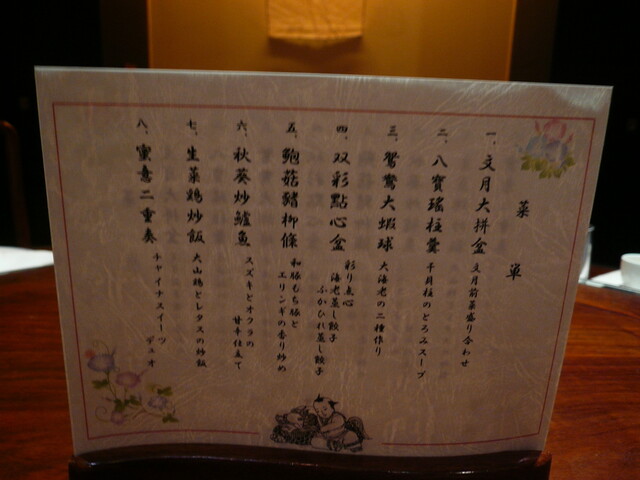 菜単
一、文月大拼盆 文月前菜盛り合わせ
二、八寶瑤柱羹 干貝柱のとろみスープ
三、鴛鴦大蝦球 大海老の二種作り
四、双彩點心盆 彩り点心
海老蒸し餃子
ふかひれ蒸し餃子
五、鮑菇豬柳條 和豚もち豚と
エリンギの香り炒め
六、秋葵炒鱸魚 スズキとオクラの
甘辛仕立て
七、生菜鶏炒飯 大山鶏とレタスの炒飯
八、蜜意二重奏 チャイナスイーツ
デュオ